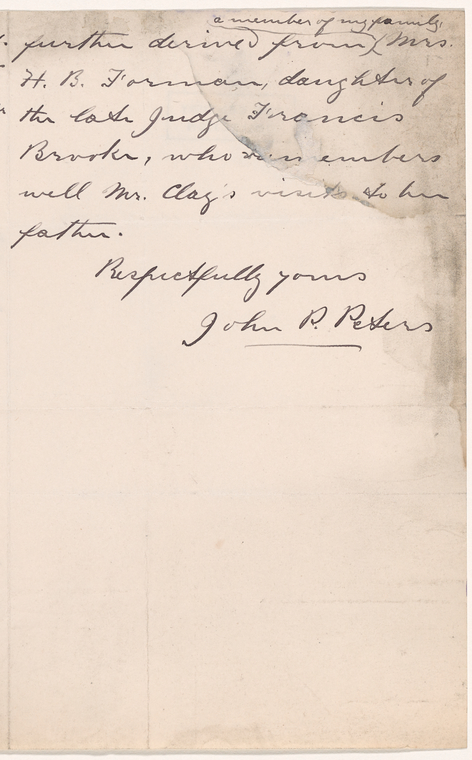 a member of my family,
further derived from Mrs.
H. B. Forman, daughter of
the late Judge Francis
Brooke, who remembers
well Mr. Clay's visits to her
father.
Respectfully yours
John P. Peters